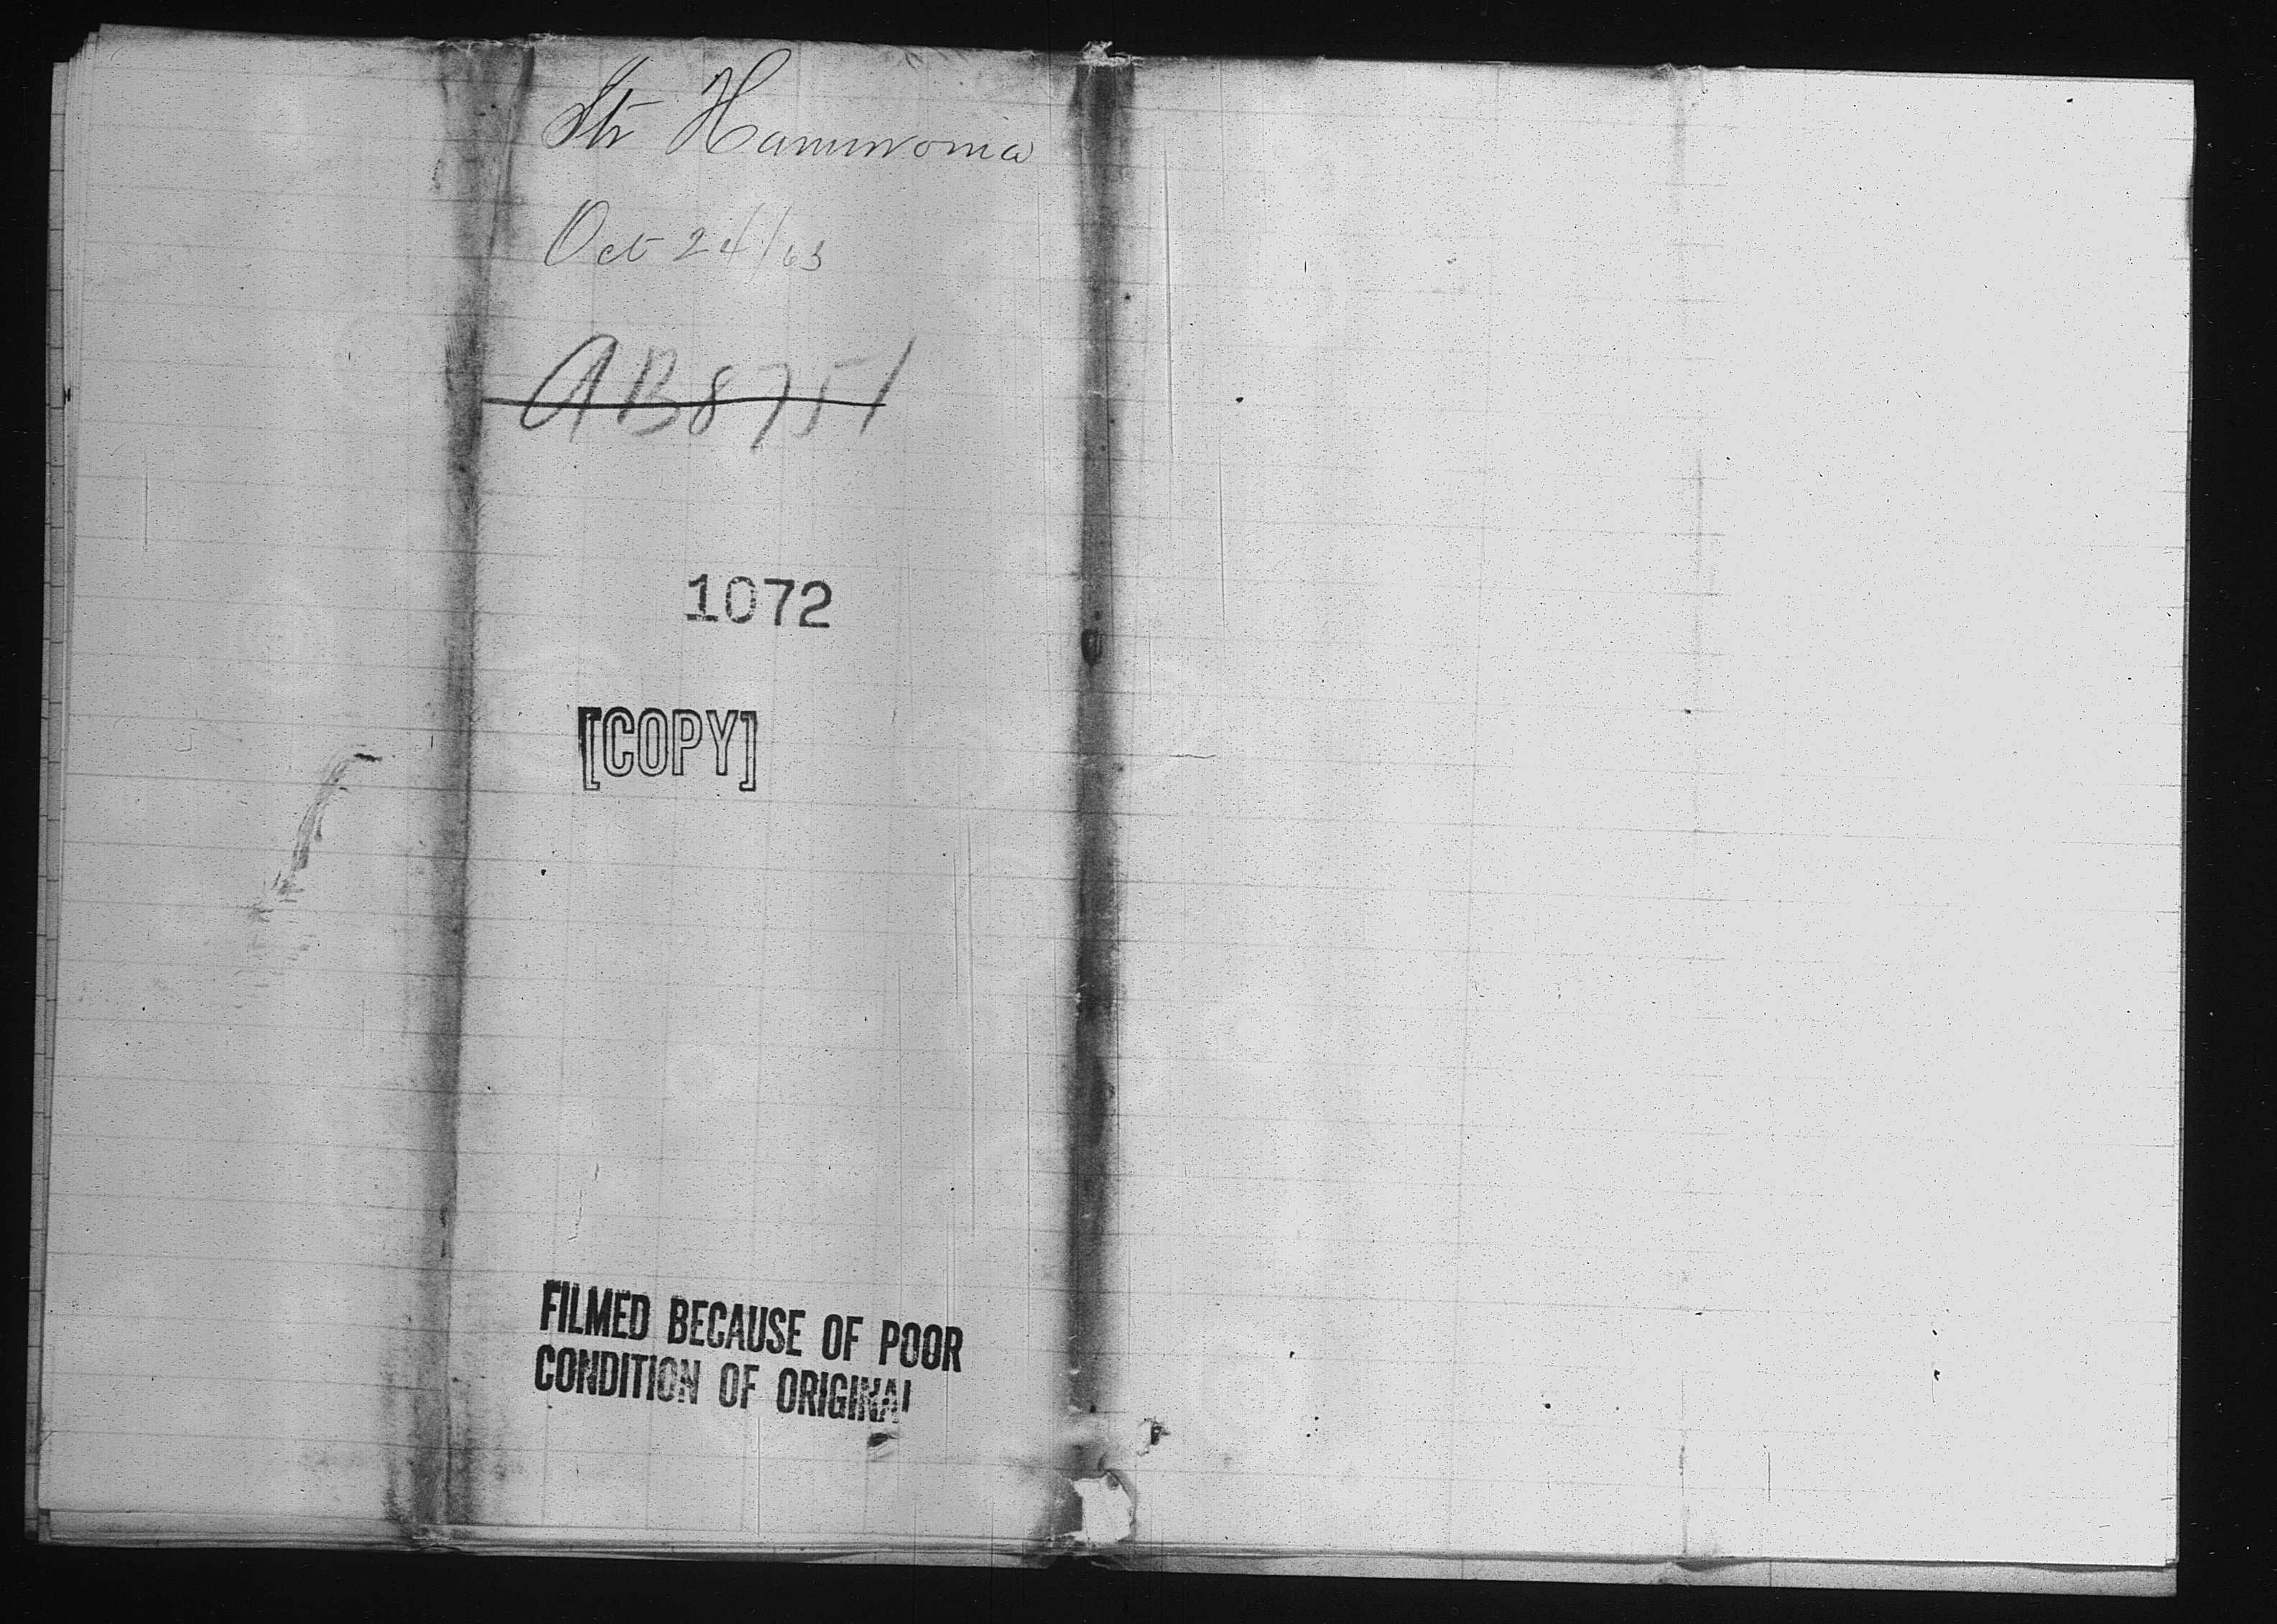 Str Hammonia
Oct 24/63
AB8751
1072
[COPY]
FILMED BECAUSE OF POOR
CONDITION OF ORIGINAL